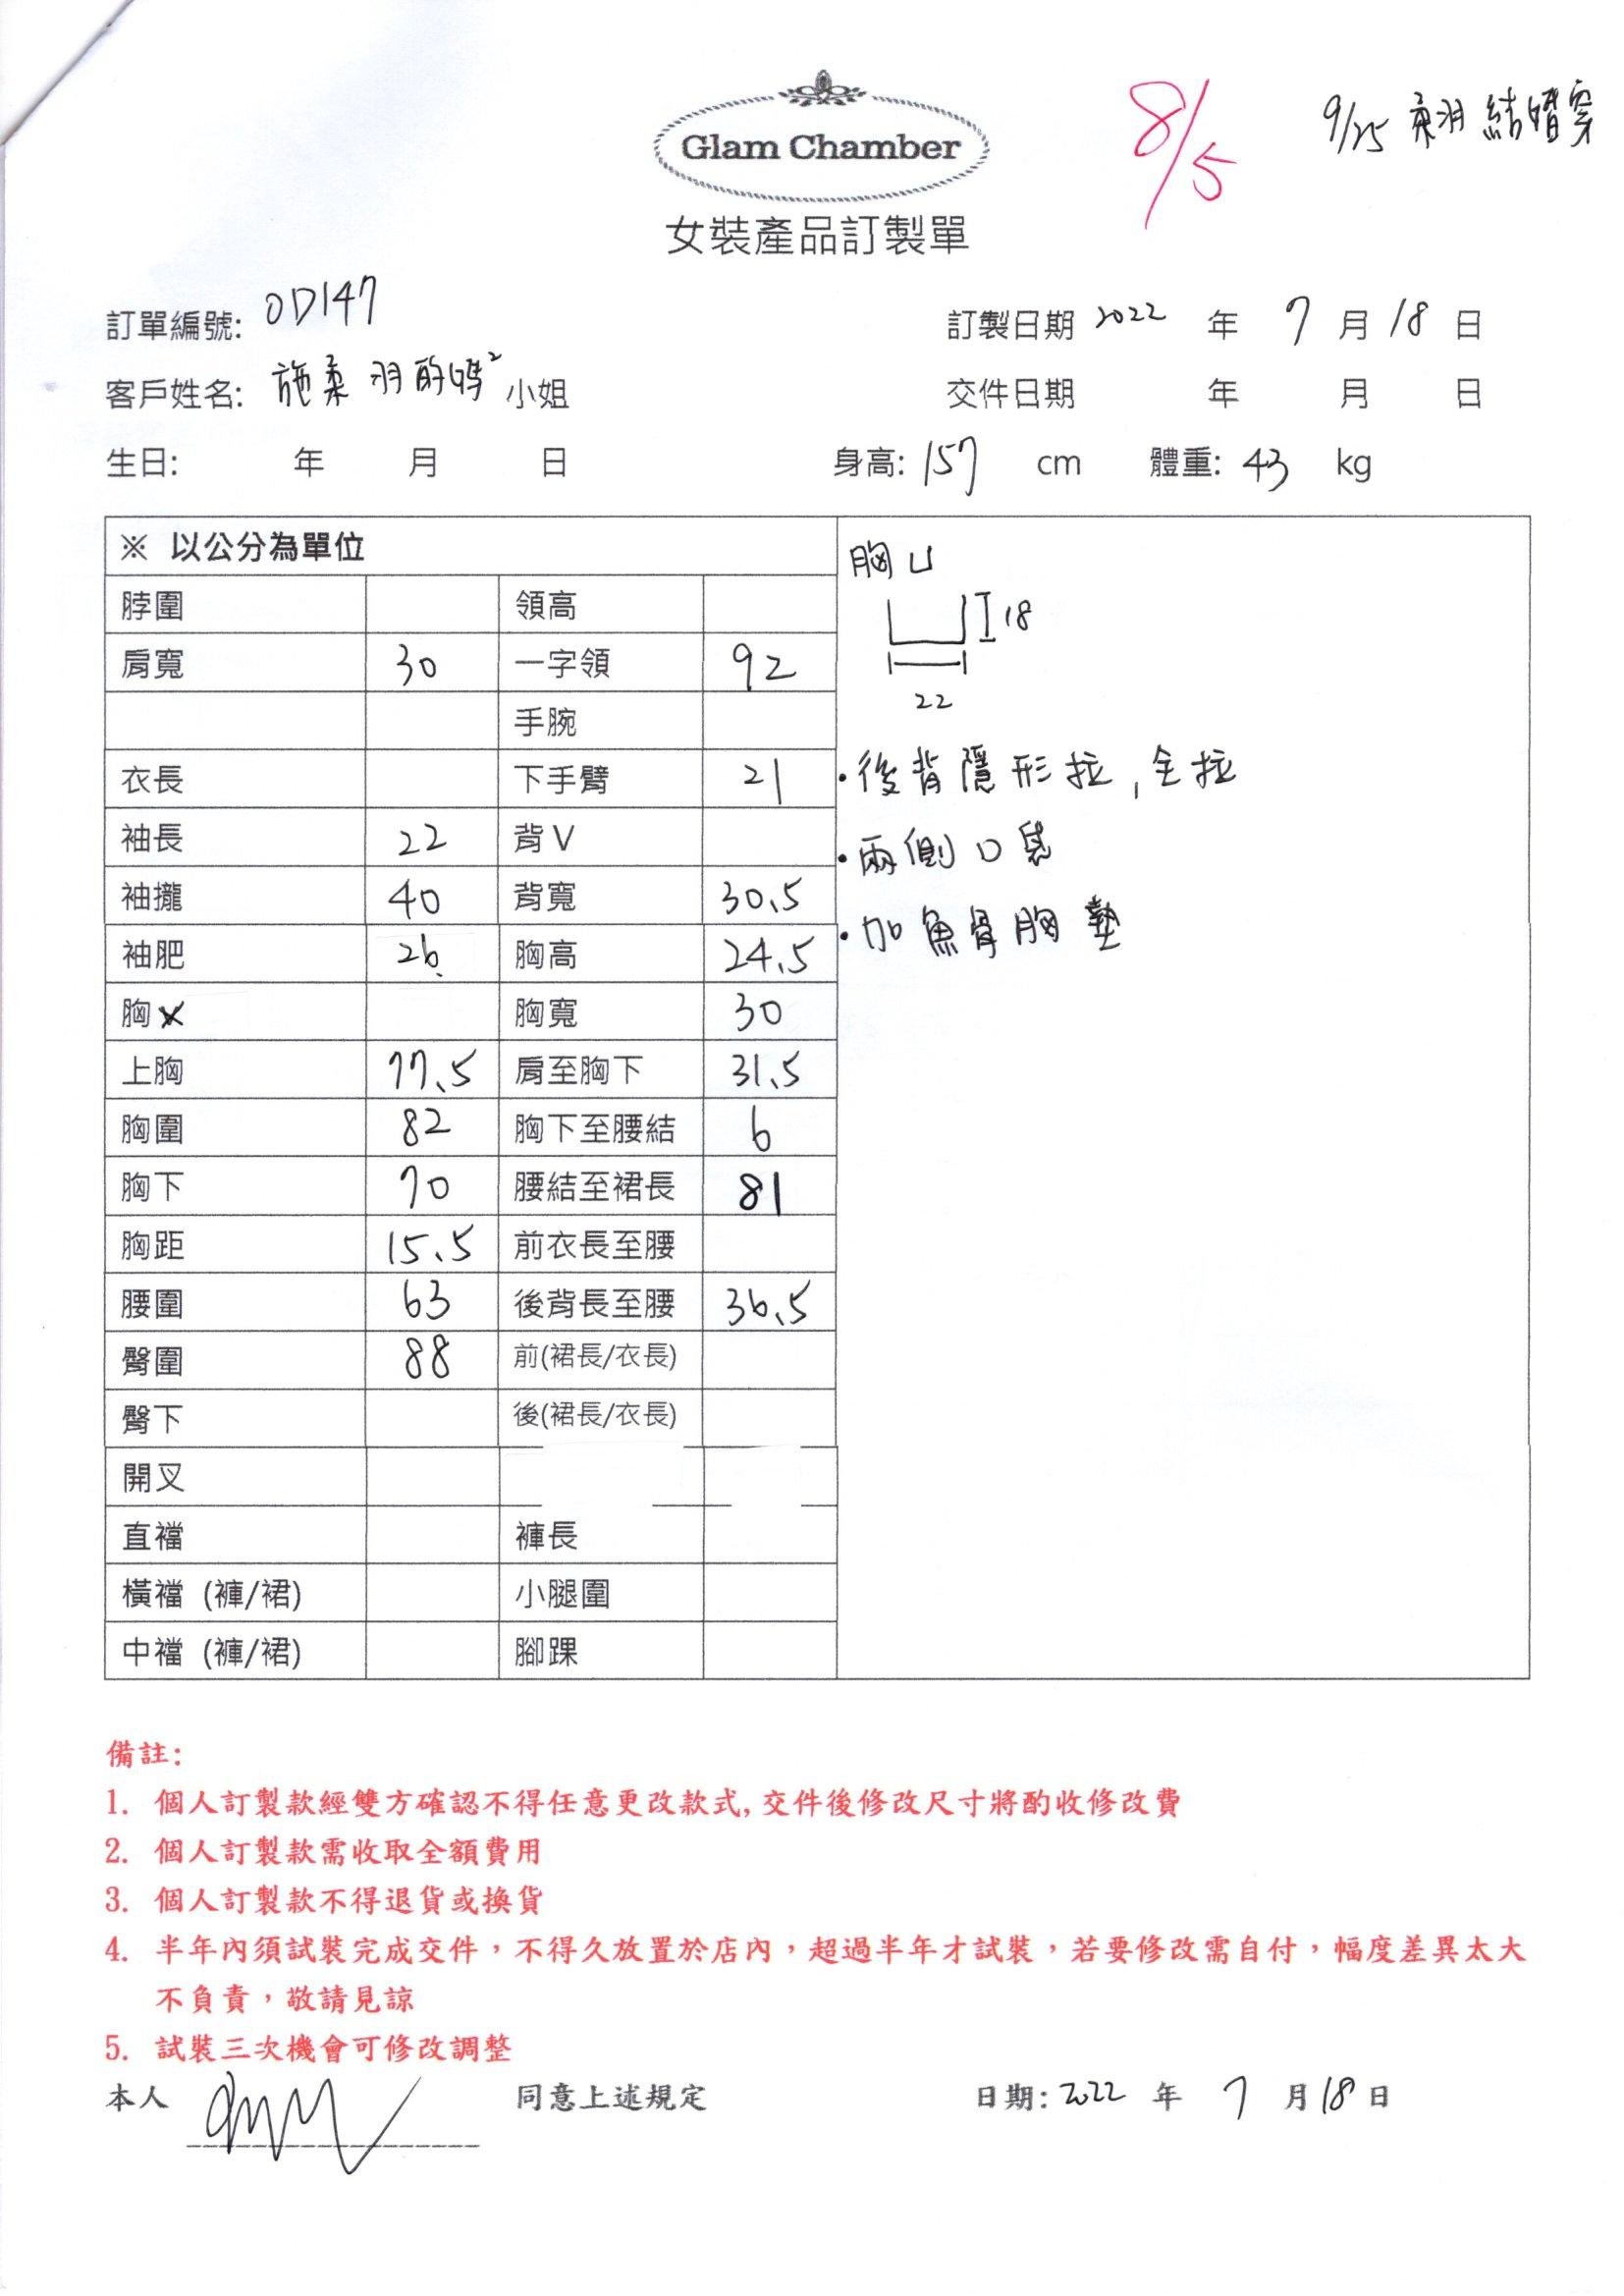 8/5
9/25 柔羽結婚穿
Glam Chamber
女裝產品訂製單
訂單編號: OD147
訂製日期 2022 年 7 月 18 日
客戶姓名: 施柔羽的媽² 小姐
交件日期 年 月 日
生日: 年 月 日
身高: 157 cm 體重: 43 kg
※ 以公分為單位
脖圍 領高
肩寬 30 一字領 92
手腕
衣長 下手臂 21
袖長 22 背V
袖攏 40 背寬 30.5
袖肥 26. 胸高 24.5
胸 胸寬 30
上胸 77.5 肩至胸下 31.5
胸圍 82 胸下至腰結 6
胸下 70 腰結至裙長 81
胸距 15.5 前衣長至腰
腰圍 63 後背長至腰 36.5
臀圍 88 前(裙長/衣長)
臀下 後(裙長/衣長)
開叉
直襠 褲長
橫襠 (褲/裙) 小腿圍
中襠 (褲/裙) 腳踝
胸 U
18
22
•後背隱形拉,全拉
•兩側口袋
•加魚骨胸墊
備註:
1. 個人訂製款經雙方確認不得任意更改款式,交件後修改尺寸將酌收修改費
2. 個人訂製款需收取全額費用
3. 個人訂製款不得退貨或換貨
4. 半年內須試裝完成交件，不得久放置於店內，超過半年才試裝，若要修改需自付，幅度差異太大
不負責，敬請見諒
5. 試裝三次機會可修改調整
本人 同意上述規定 日期: 2022 年 7 月 18 日